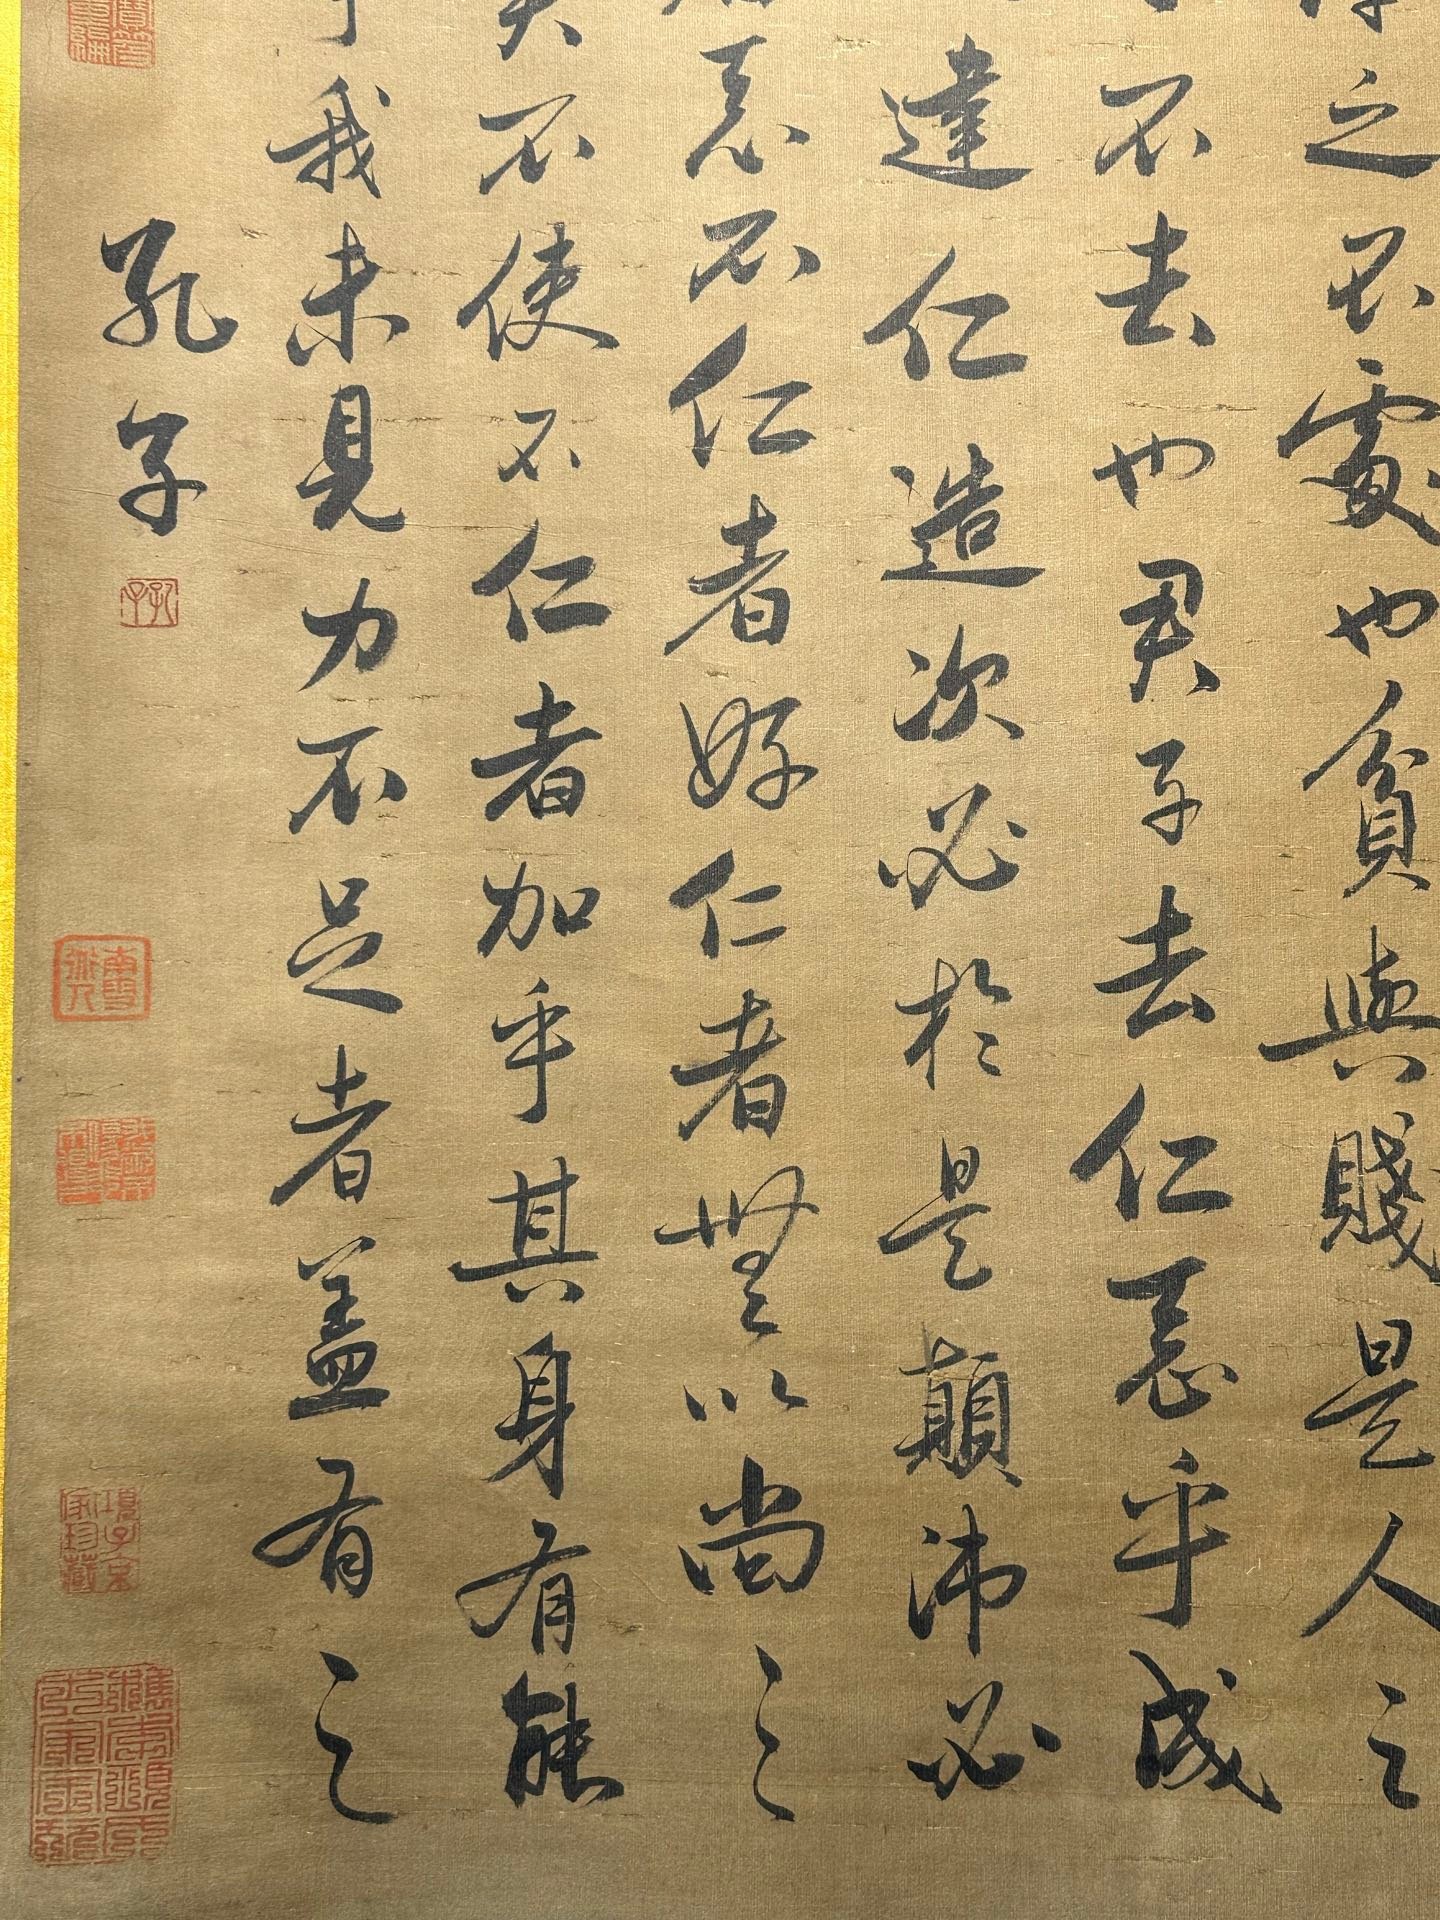 之不處也貧與賤是人之
不去也君子去仁惡乎成
違仁造次必於是顛沛必
惡不仁者好仁者無以尚之
矣不使不仁者加乎其身有能
乎我未見力不足者蓋有之
孔子
項子京家珍藏